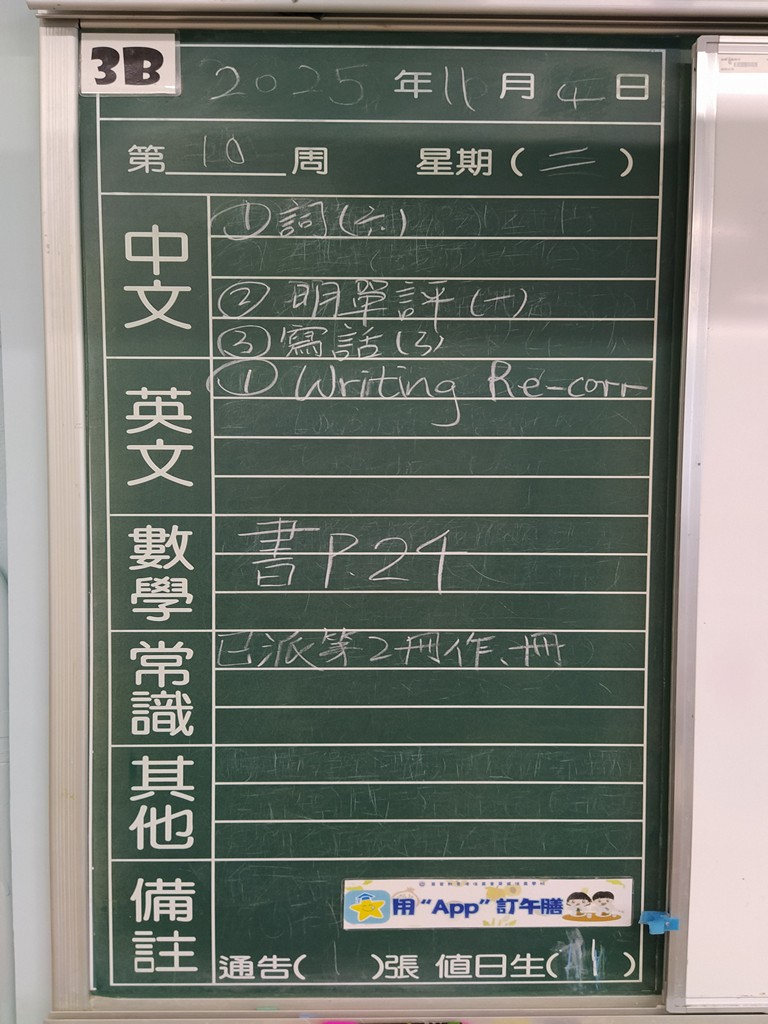 3B
2025年11月4日
第10周 星期(二)
中文
①詞(六)
②明單評(十)
③寫話(3)
英文
① Writing Re-corr
數學
書P.24
常識
已派第2冊作、冊
其他
備註
用“App”訂午膳
通告(1)張 值日生(11)